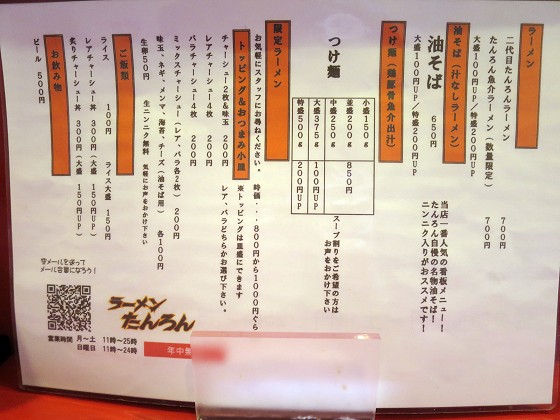 ラーメン
二代目たんろんラーメン 700円
たんろん魚介ラーメン(数量限定) 700円
大盛100円UP/特盛200円UP
油そば(汁なしラーメン)
油そば 650円
大盛100円UP/特盛200円UP
当店一番人気の看板メニュー!
たんろん自慢の名物油そば!
ニンニク入りがおススメです!
つけ麺(鶏豚骨魚介出汁)
つけ麺
小盛150g
並盛200g
中盛250g
850円
大盛375g 100円UP
特盛500g 200円UP
スープ割りをご希望の方は
お声をおかけ下さい
限定ラーメン
お気軽にスタッフにお尋ねください。 時価・・・800円から1000円ぐらい
トッピング&おつまみ小皿
※トッピングは皿盛にできます
チャーシュー2枚&味玉 200円
レアチャーシュー4枚 200円
バラチャーシュー4枚 200円
レア、バラどちらかお選び下さい。
ミックスチャーシュー(レア、バラ各2枚) 200円
味玉、ネギ、メンマ、海苔、チーズ(油そば用) 各100円
生卵50円 生ニンニク無料 気軽にお声をおかけ下さい
ご飯類
ライス 100円 ライス大盛 150円
レアチャーシュー丼 300円(大盛 150円UP)
炙りチャーシュー丼 300円(大盛 150円UP)
お飲み物
ビール 500円
空メールをおくって
メール会員になろう!
ラーメン
たんろん
営業時間 月〜土 11時〜25時
日曜日 11時〜24時
年中無